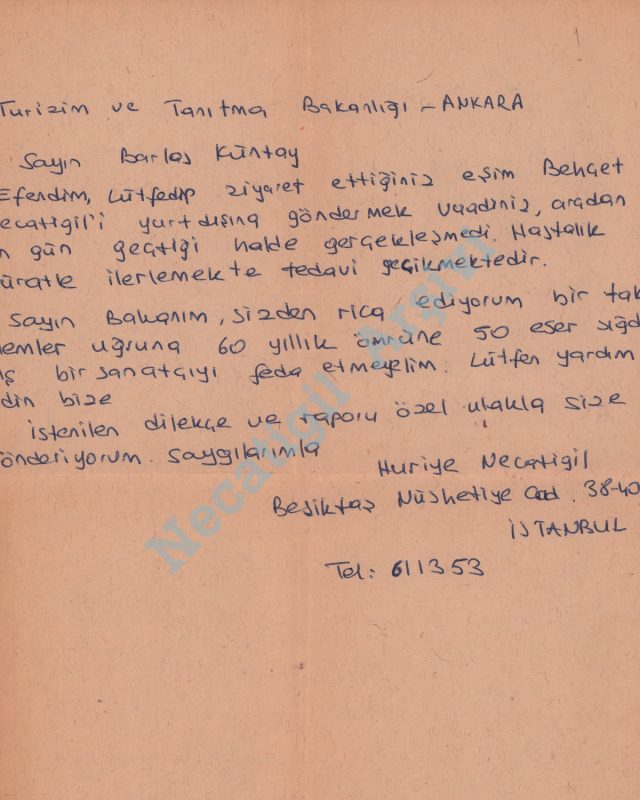 Turizim ve Tanıtma Bakanlığı - ANKARA
Sayın Barlas Küntay
Efendim, Lütfedip ziyaret ettiğiniz eşim Behçet
ecatigil'i yurtdışına göndermek vaadiniz, aradan
n gün geçtiği halde gerçekleşmedi. Hastalık
üratle ilerlemekte tedavi gecikmektedir.
Sayın Bakanım, sizden rica ediyorum bir tak
emler uğruna 60 yıllık ömrüne 50 eser sığd
ış bir sanatçıyı feda etmeyelim. Lütfen yardım
din bize
İstenilen dilekçe ve raporu özel ulakla size
önderiyorum. Saygılarımla
Huriye Necatigil
Beşiktaş Nüshetiye Cad. 38-40
İSTANBUL
Tel: 611353
Necatigil Arşivi